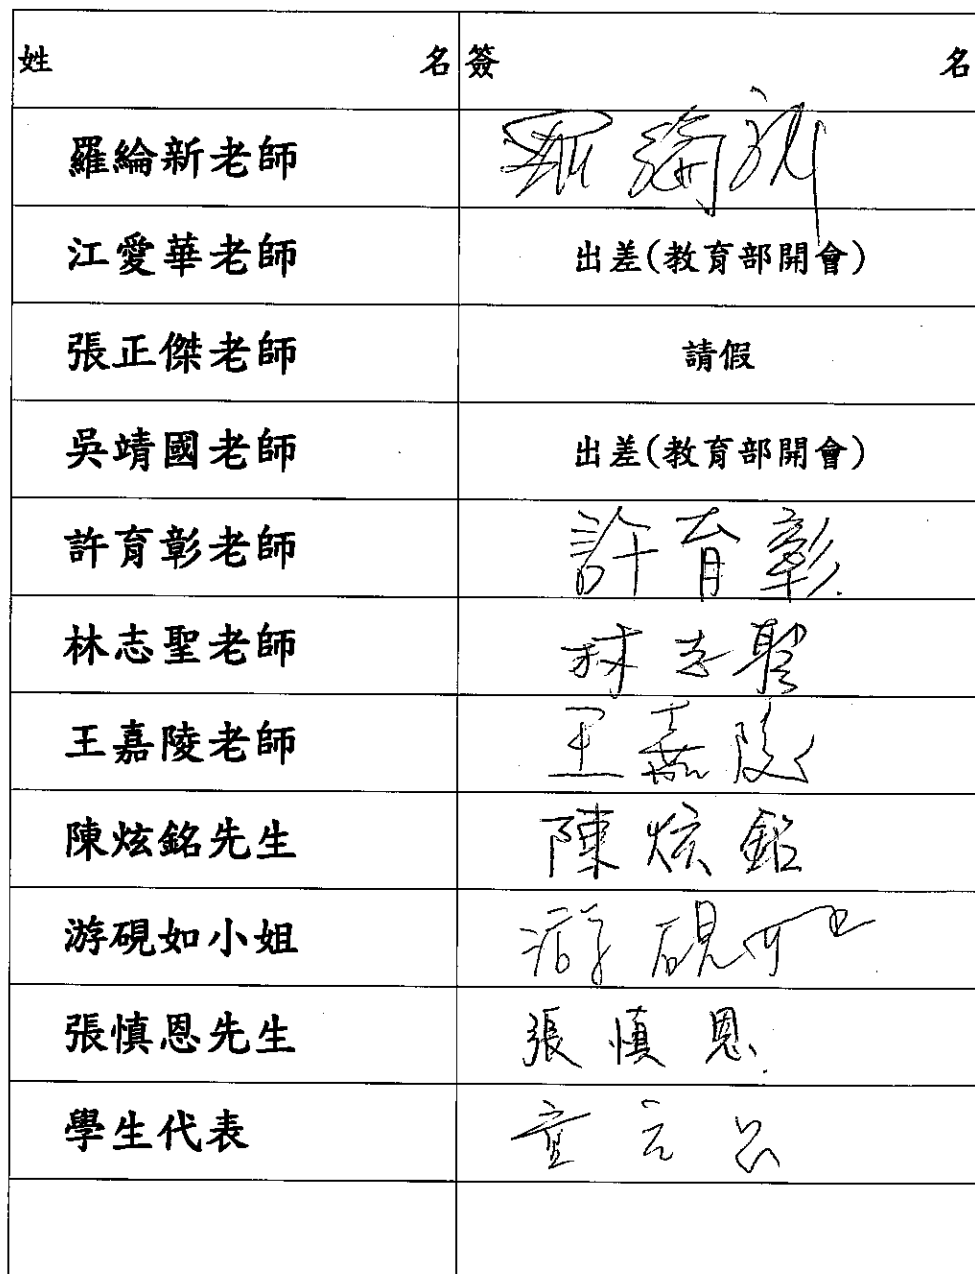 姓名 簽名
羅綸新老師 羅綸新
江愛華老師 出差(教育部開會)
張正傑老師 請假
吳靖國老師 出差(教育部開會)
許育彰老師 許育彰
林志聖老師 林志聖
王嘉陵老師 王嘉陵
陳炫銘先生 陳炫銘
游硯如小姐 游硯如
張慎恩先生 張慎恩
學生代表 童元